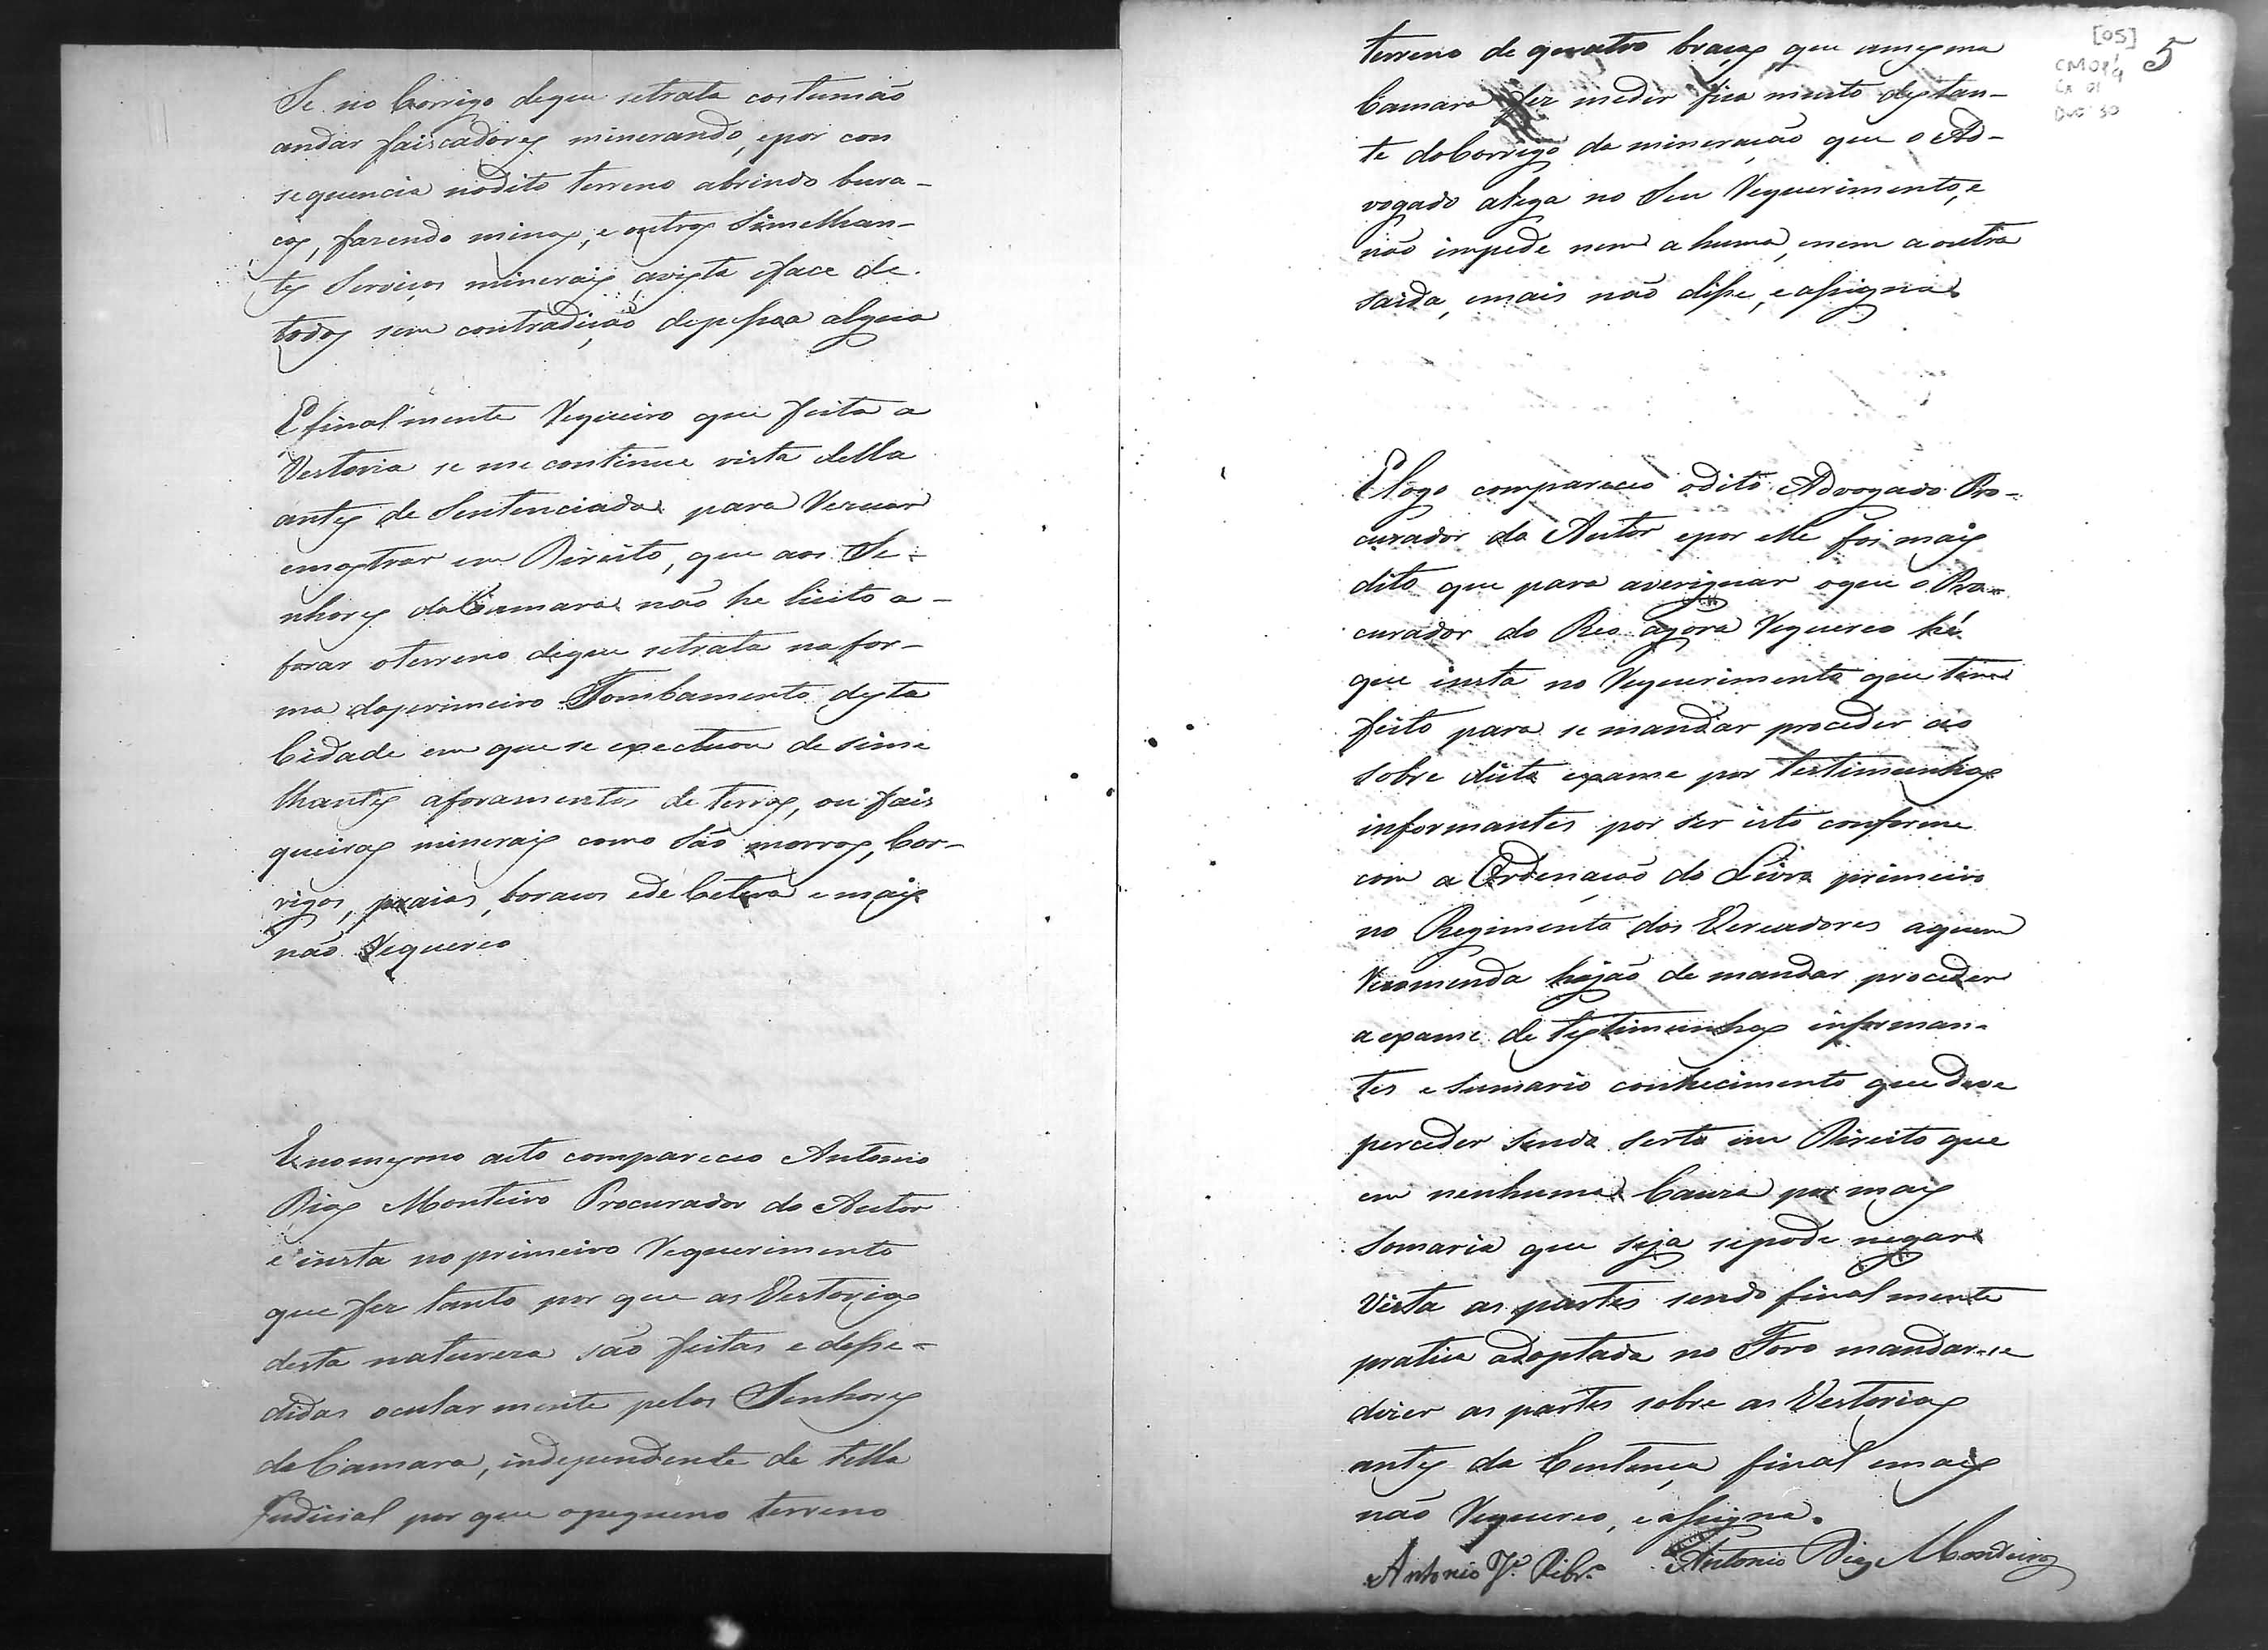 Se no Corrigo deque setrata costumão
andar faiscadores minerando, epor con
sequencia nodito terreno abrindo bura-
cos, fazendo minas, e outros Simelhan-
tes Serviços minerais avista eface de
todos sem contradição depessoa algũa
Efinalmente Requeiro que feita a
Vestoria se me continue vista della
antes de Sentenciada para Rezoar
emostrar em Direito, que aos Se-
nhores daCamara não he licito a-
forar oterreno deque setrata nafor-
ma doprimeiro Tombamento desta
Cidade em que se exectuou de sime
lhantes aforamentos de terras, ou fais
queiras minerais como São morros, Cor-
rigos, praias, boracos ede Cetera e mais
não Requereo
Enomesmo acto compareceo Antonio
Dias Monteiro Procurador do Autor
e insta no primeiro Requerimento
que fez tanto por que as Vestorias
desta natureza são feitas e desse-
didas ocularmente pelos Senhores
da Camara, independente de tella
Judicial por que opequeno terreno
[05]
5
CMOP/
Cx 01
Doc 30
terreno de quatro braças que amesma
Camara fez medir fica muito destan-
te doCorrigo da mineração que o Ad-
vogado alega no Seu Requerimento, e
não impede nem a huma, enem a outra
saida, emais não disse, e assigna.
Elogo compareceo odito Advogado Pro-
curador do Autor epor elle foi mais
dito que para averiguar oque o Pro-
curador do Reo agora Requereo hé
que insta no Requerimento que tem
feito para se mandar proceder ao
sobre dicto exame por testimunhas
informantes por ser isto conforme
com a Ordenação do Livro primeiro
no Regimento dos Vereadores aquem
Recomenda hajão de mandar proceder
a exame de testimunhas informan-
tes e sumario conhecimento que deve
perceder sendo serto em Direito que
em nenhuma Cauza por mais
Somaria que seja sepode negar
Vista as partes sendo finalmente
pratica adoptada no Foro mandar-se
dizer as partes sobre as Vestorias
antes da Centença final emais
não Requereo, e assigna.
Antonio Je. Ribr.o Antonio Dias Monteiro